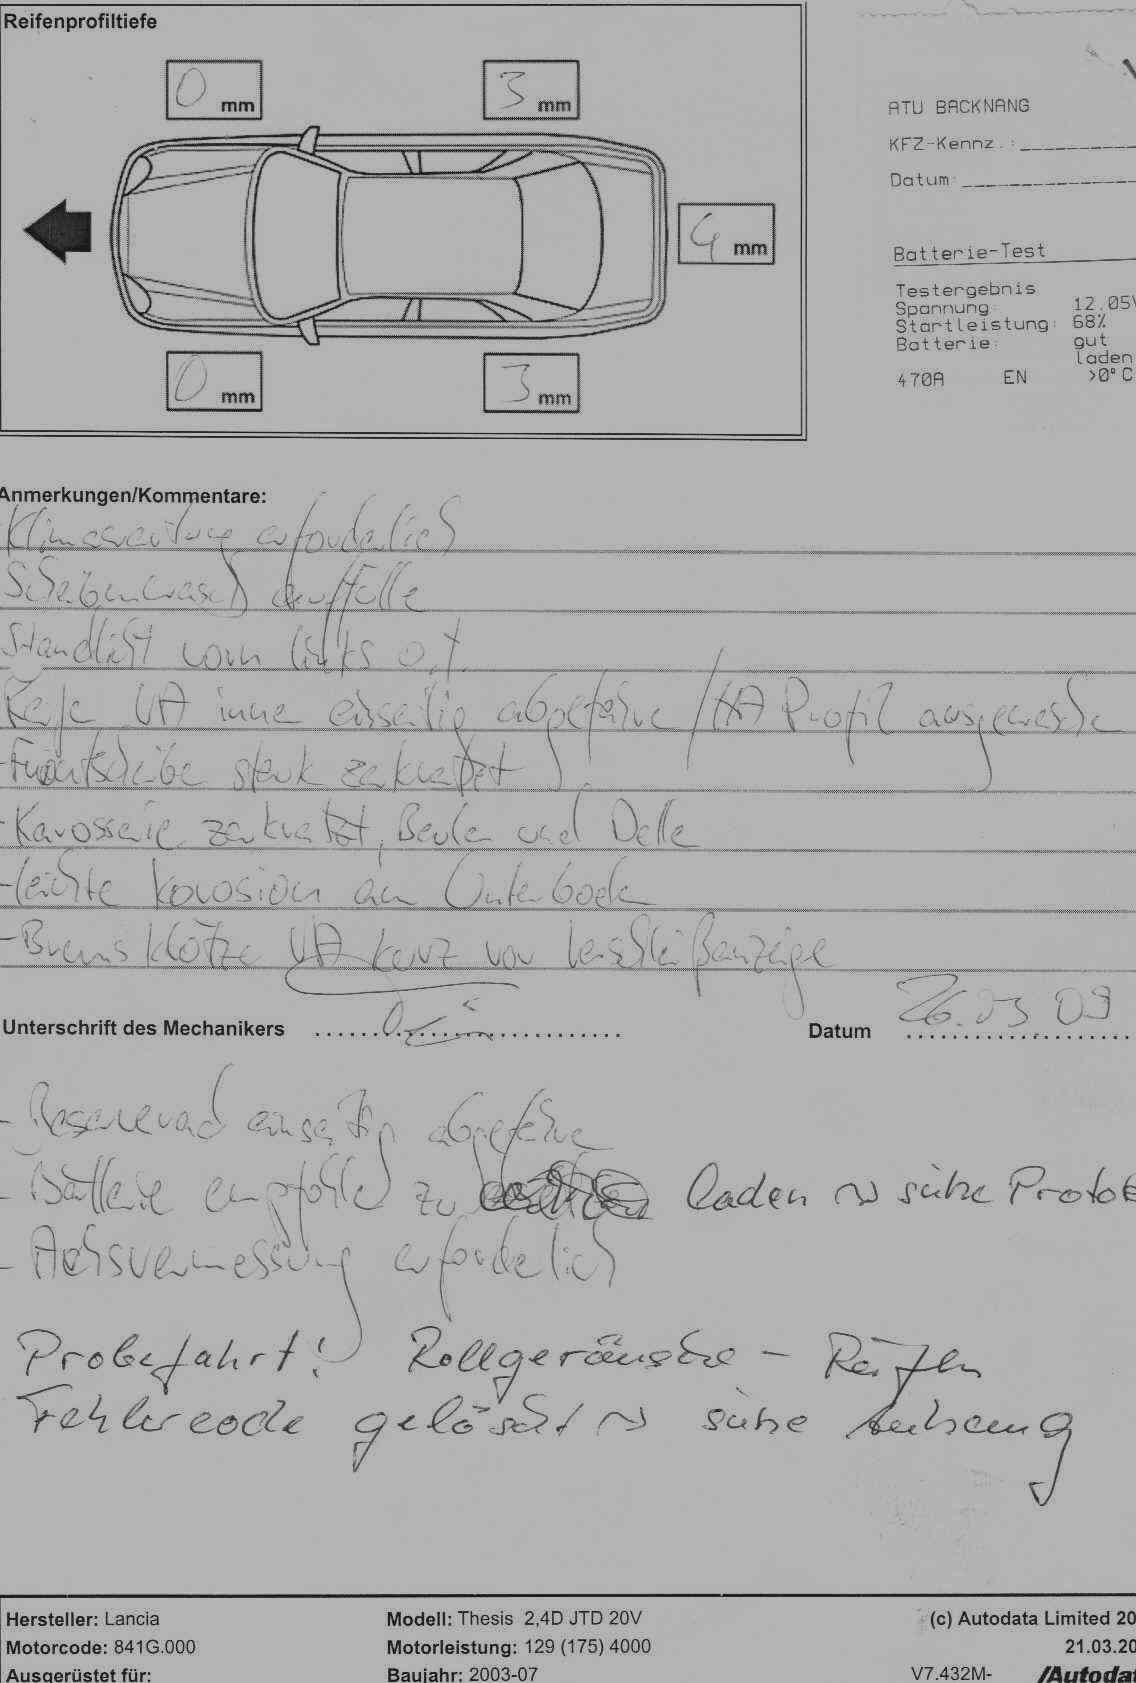 Reifenprofiltiefe
0 mm
3 mm
4 mm
0 mm
3 mm
ATU BACKNANG
KFZ-Kennz.:
Datum:
Batterie-Test
Testergebnis
Spannung: 12.05V
Startleistung: 68%
Batterie: gut
laden
470A EN >0°C
Anmerkungen/Kommentare:
erforderlich
Scheibenwasch auffülle
Standlicht vorn links o.f.
Reife VA inne einseitig abgefahre / HA Profil ausgewasche
-Frontscheibe stark zerkratzt
-Karosserie zerkratzt, Beulen und Delle
-leichte Korosion am Unterbode
-Bremsklötze VA kurz vor Verschleißanzeige
Unterschrift des Mechanikers
Datum 26.03.09
- Reserverad einseitig abgefahre
- Batterie empfohle zu laden ~> siehe Protok
- Achsvermessung erforderlich
Probefahrt! Rollgeräusche - Reifen
Fehlercode gelöscht ~> siehe
Hersteller: Lancia
Modell: Thesis 2,4D JTD 20V
(c) Autodata Limited 20
Motorcode: 841G.000
Motorleistung: 129 (175) 4000
21.03.20
Ausgerüstet für:
Baujahr: 2003-07
V7.432M-
/Autodat